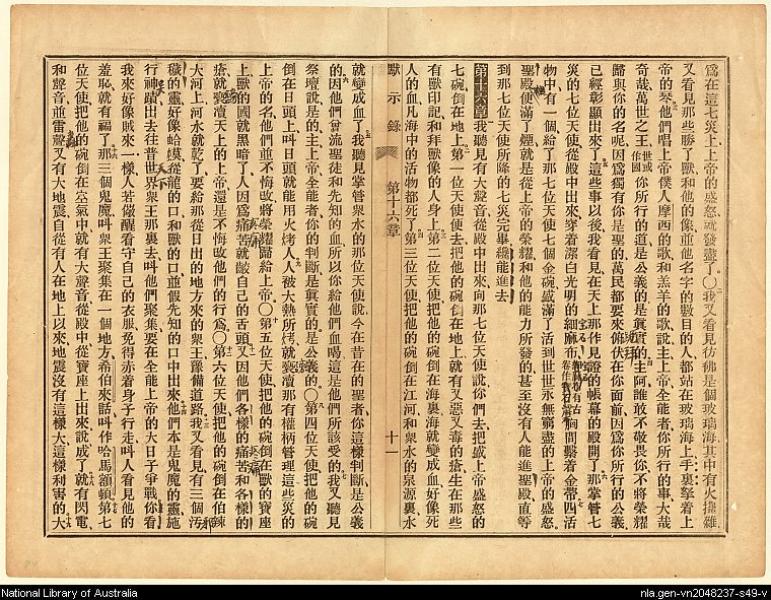 爲在這七災上上帝的盛怒就發盡了○我又看見彷彿是個玻璃海其中有火攙雜
又看見那些勝了獸和他的像並他名字的數目的人都站在玻璃海上手裏拏着上
帝的琴他們唱上帝僕人摩西的歌和羔羊的歌說主上帝全能者你所行的事大哉
奇哉萬世之王世或作國你所行的道是公義的是眞實的主阿誰敢不敬畏你不將榮耀
歸與你的名呢因爲獨有你是聖的萬民都要來俯伏在你面前因爲你所行的公義
已經彰顯出來了這些事以後我看見在天上那作見證的帳幕的殿開了那掌管七
災的七位天使從殿中出來穿着潔白光明的細麻布間繫着金帶四活
物中有一個給了那七位天使七個金碗盛滿了活到世世永無窮盡的上帝的盛怒
聖殿便滿了煙就是從上帝的榮耀和他的能力所發的甚至沒有人能進聖殿直等
到那七位天使所降的七災完畢纔能進去
第十六章我聽見有大聲音從殿中出來向那七位天使說你們去把盛上帝盛怒的
七碗倒在地上第一位天使便去把他的碗倒在地上就有又惡又毒的瘡生在那些
有獸印記和拜獸像的人身上第二位天使把他的碗倒在海裏海就變成血好像死
人的血凡海中的活物都死了第三位天使把他的碗倒在江河和衆水的泉源裏水
默示錄 第十六章 十一
就變成血了我聽見掌管衆水的那位天使說今在昔在的聖者你這樣判斷是公義
的因他們曾流聖徒和先知的血所以你給他們血喝這是他們所該受的我又聽見
祭壇說是的主上帝全能者你的判斷是眞實的是公義的○第四位天使把他的碗
倒在日頭上叫日頭就能用火烤人人被大熱所烤就褻瀆那有權柄管理這些災的
上帝的名他們並不悔改將榮耀歸給上帝○第五位天使把他的碗倒在獸的寶座
上獸的國就黑暗了人因爲痛苦就齩自己的舌頭又因他們各樣的痛苦和各樣的
瘡就褻瀆天上的上帝還是不悔改他們的行爲○第六位天使把他的碗倒在伯辣
大河上河水就乾了要給那從日出的地方來的衆王豫備道路我又看見有三個汚
穢的靈好像蛤蟆從龍的口和獸的口並假先知的口中出來他們本是鬼魔的靈施
行神蹟出去往普世界衆王那裏去叫他們聚集要在全能上帝的大日子爭戰你看
我來好像賊來一樣人若儆醒看守自己的衣服免得赤着身子行走叫人看見他的
羞恥就有福了那三個鬼魔叫衆王聚集在一個地方希伯來話叫作哈馬額頓第七
位天使把他的碗倒在空氣中就有大聲音從殿中從寶座上出來說成了就有閃電
和聲音並雷聲又有大地震自從有人在地上以來地震沒有這樣大這樣利害的大
National Library of Australia
nla.gen-vn2048237-s49-v